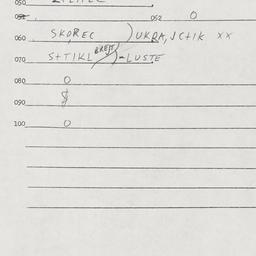 050
052 0
060 SKOREC ) UKRA,JCTIK XX
070 S+TIKL BREJT )-LUSTE
080 0
090
100 0